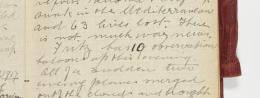 sunk in the Mediterranean
and 63 lives lost. There
is not much war news.
Fritz has 10 observation
balloons up this evening.
All of a sudden two
enemy planes merged
out of the clouds and brought